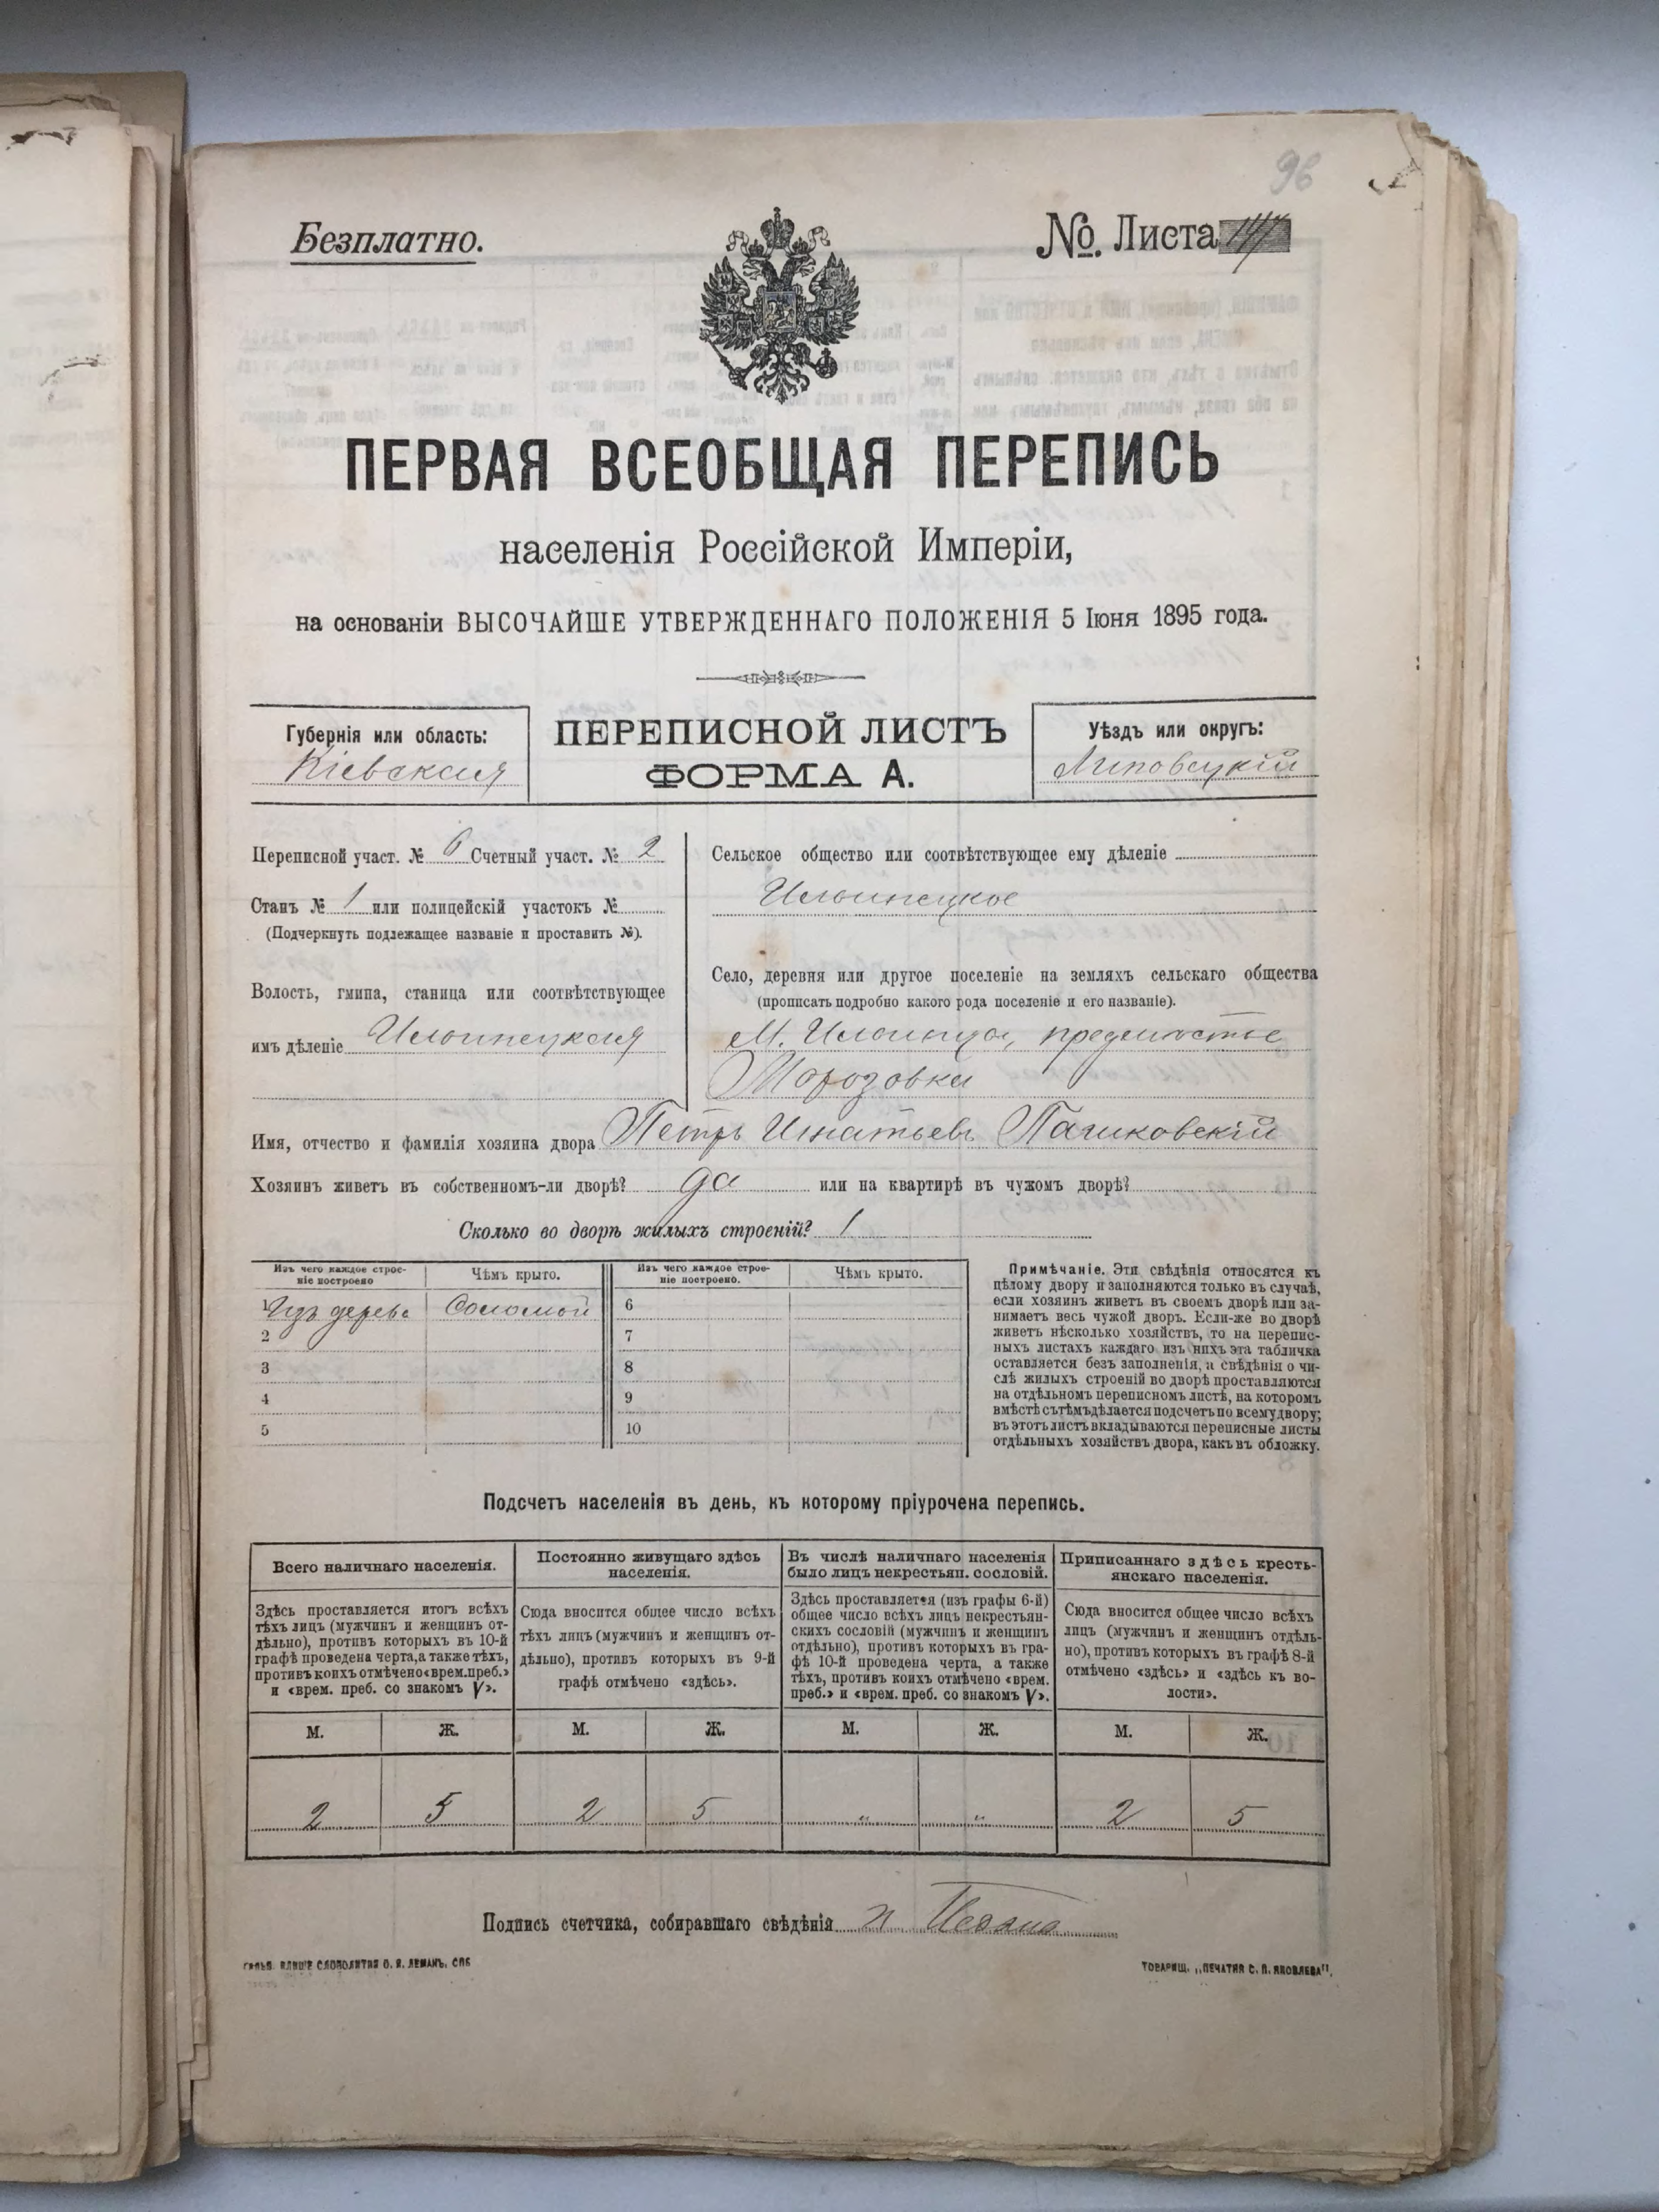 96
Безплатно.
№ Листа
ПЕРВАЯ ВСЕОБЩАЯ ПЕРЕПИСЬ
населенія Россійской Имперіи,
на основаніи ВЫСОЧАЙШЕ УТВЕРЖДЕННАГО ПОЛОЖЕНІЯ 5 Іюня 1895 года.
Губернія или область:
Кіевская
ПЕРЕПИСНОЙ ЛИСТЪ
ФОРМА А.
Уѣздъ или округъ:
Липовецкій
Переписной участ. № 6 Счетный участ. № 2
Станъ № 1 или полицейскій участокъ №
(Подчеркнуть подлежащее названіе и проставить №).
Волость, гмина, станица или соотвѣтствующее
имъ дѣленіе Ильинецкая
Сельское общество или соотвѣтствующее ему дѣленіе
Ильинецкое
Село, деревня или другое поселеніе на земляхъ сельскаго общества
(прописать подробно какого рода поселеніе и его названіе).
М. Ильинцы, предмѣстье
Морозовка
Имя, отчество и фамилія хозяина двора Петръ Игнатьевъ Пашковскій
Хозяинъ живетъ въ собственномъ-ли дворѣ? да или на квартирѣ въ чужомъ дворѣ?
Сколько во дворѣ жилыхъ строеній? 1
Изъ чего каждое строе-
ніе построено
Чѣмъ крыто.
Изъ чего каждое строе-
ніе построено.
Чѣмъ крыто.
1 Изъ дерева Соломой 6
2 7
3 8
4 9
5 10
Примѣчаніе. Эти свѣдѣнія относятся къ
цѣлому двору и заполняются только въ случаѣ,
если хозяинъ живетъ въ своемъ дворѣ или за-
нимаетъ весь чужой дворъ. Если-же во дворѣ
живетъ нѣсколько хозяйствъ, то на перепис-
ныхъ листахъ каждаго изъ нихъ эта табличка
оставляется безъ заполненія, а свѣдѣнія о чи-
слѣ жилыхъ строеній во дворѣ проставляются
на отдѣльномъ переписномъ листѣ, на которомъ
вмѣстѣ съ тѣмъ дѣлается подсчетъ по всему двору;
въ этотъ листъ вкладываются переписные листы
отдѣльныхъ хозяйствъ двора, какъ въ обложку.
Подсчетъ населенія въ день, къ которому пріурочена перепись.
Всего наличнаго населенія.
Здѣсь проставляется итогъ всѣхъ
тѣхъ лицъ (мужчинъ и женщинъ от-
дѣльно), противъ которыхъ въ 10-й
графѣ проведена черта, а также тѣхъ,
противъ коихъ отмѣчено «врем. преб.»
и «врем. преб. со знакомъ V».
Постоянно живущаго здѣсь
населенія.
Сюда вносится общее число всѣхъ
тѣхъ лицъ (мужчинъ и женщинъ от-
дѣльно), противъ которыхъ въ 9-й
графѣ отмѣчено «здѣсь».
Въ числѣ наличнаго населенія
было лицъ некрестьян. сословій.
Здѣсь проставляется (изъ графы 6-й)
общее число всѣхъ лицъ некрестьян-
скихъ сословій (мужчинъ и женщинъ
отдѣльно), противъ которыхъ въ гра-
фѣ 10-й проведена черта, а также
тѣхъ, противъ коихъ отмѣчено «врем.
преб.» и «врем. преб. со знакомъ V».
Приписаннаго здѣсь кресть-
янскаго населенія.
Сюда вносится общее число всѣхъ
лицъ (мужчинъ и женщинъ отдѣль-
но), противъ которыхъ въ графѣ 8-й
отмѣчено «здѣсь» и «здѣсь къ во-
лости».
М. Ж. М. Ж. М. Ж. М. Ж.
2 5 2 5 " " 2 5
Подпись счетчика, собиравшаго свѣдѣнія
ТОВАРИЩ. „ПЕЧАТНЯ С. П. ЯКОВЛЕВА".